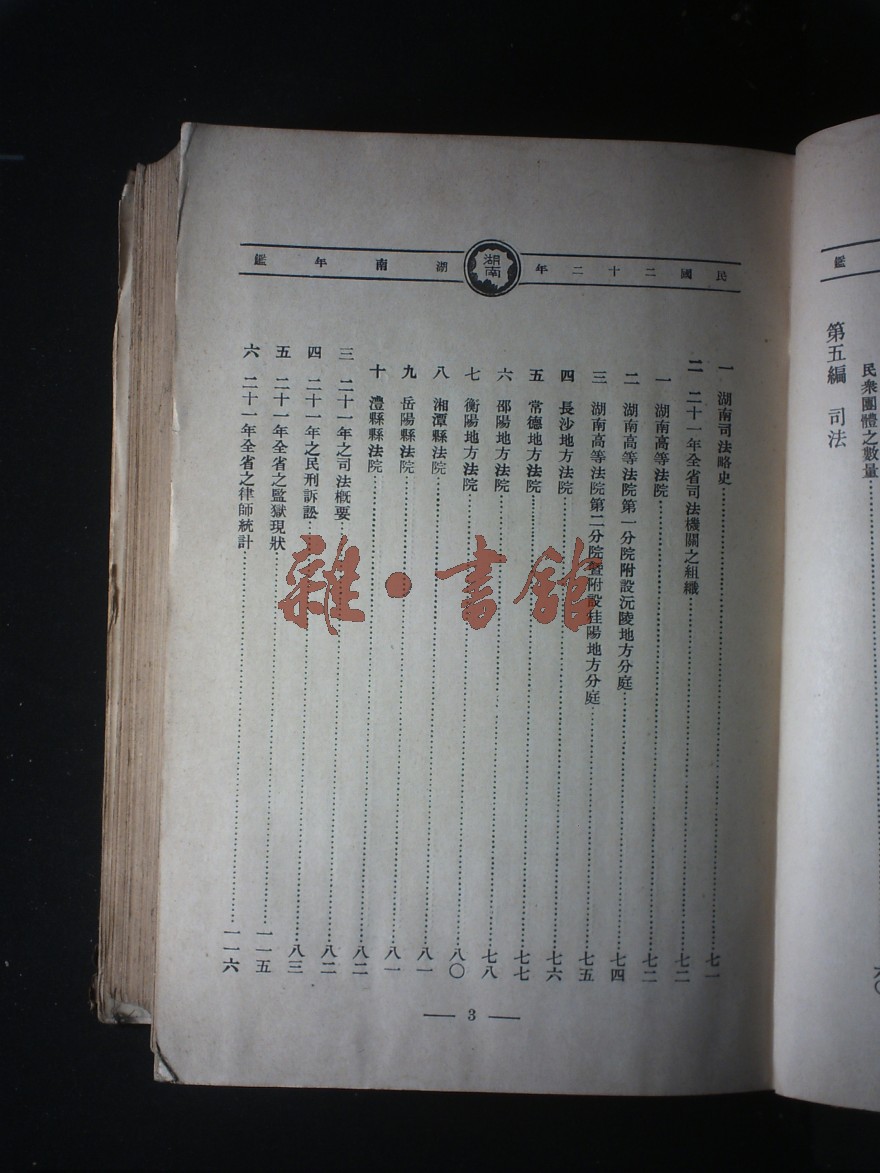 鑑
民眾團體之數量
六〇
第五編 司法
民國二十二年湖南年鑑
湖南
一 湖南司法略史 七一
二 二十一年全省司法機關之組織 七二
一 湖南高等法院 七二
二 湖南高等法院第一分院附設沅陵地方分庭 七四
三 湖南高等法院第二分院暨附設桂陽地方分庭 七五
四 長沙地方法院 七六
五 常德地方法院 七七
六 邵陽地方法院 七八
七 衡陽地方法院 八〇
八 湘潭縣法院 八一
九 岳陽縣法院 八一
十 澧縣縣法院 八二
三 二十一年之司法概要 八二
四 二十一年之民刑訴訟 八三
五 二十一年全省之監獄現狀 一一五
六 二十一年全省之律師統計 一一六
— 3 —
雜·書館